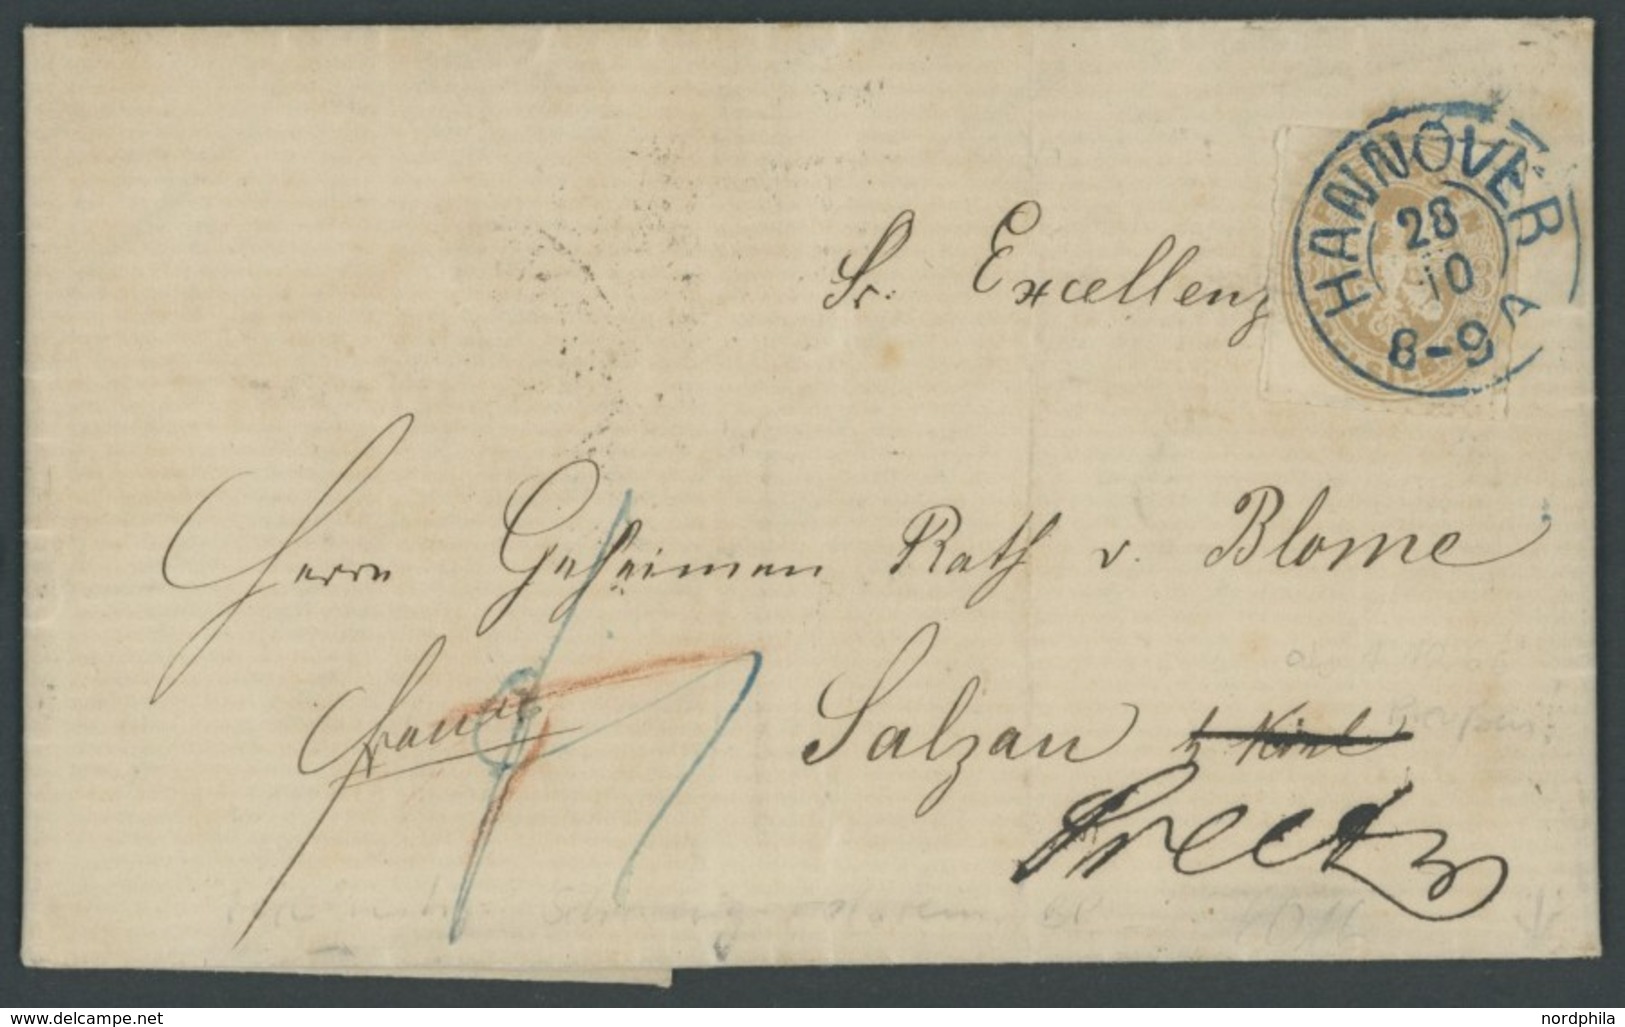 HANNOVER
28
10
8-9 A
Sr. Excellenz
Herrn Geheimen Rath v. Blome
franco
Salzau
Kiel
Preetz
www.delcampe.net
nordphila